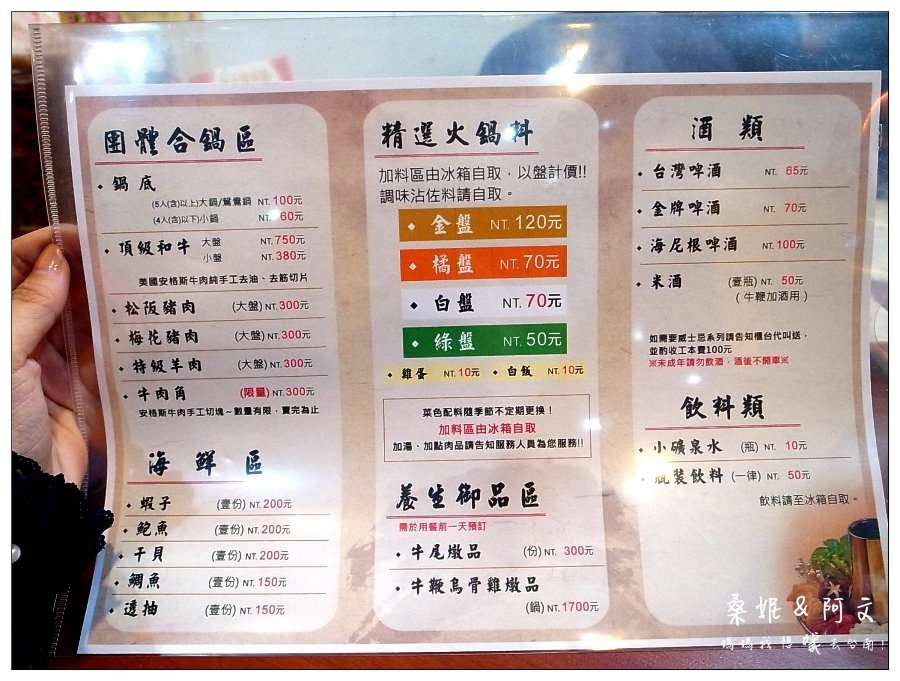 團體合鍋區
鍋底
(5人(含)以上)大鍋/鴛鴦鍋 NT. 100元
(4人(含)以下)小鍋 NT. 60元
頂級和牛 大盤 NT. 750元
小盤 NT. 380元
美國安格斯牛肉純手工去油、去筋切片
松阪豬肉 (大盤) NT. 300元
梅花豬肉 (大盤) NT. 300元
特級羊肉 (大盤) NT. 300元
牛肉角 (限量) NT. 300元
安格斯牛肉手工切塊~數量有限,賣完為止
海鮮區
蝦子 (壹份) NT. 200元
鮑魚 (壹份) NT. 200元
干貝 (壹份) NT. 200元
鯛魚 (壹份) NT. 150元
透抽 (壹份) NT. 150元
精選火鍋料
加料區由冰箱自取,以盤計價!!
調味沾佐料請自取。
金盤 NT. 120元
橘盤 NT. 70元
白盤 NT. 70元
綠盤 NT. 50元
雞蛋 NT. 10元 白飯 NT. 10元
菜色配料隨季節不定期更換!
加料區由冰箱自取
加湯、加點肉品請告知服務人員為您服務!!
養生御品區
需於用餐前一天預訂
牛尾燉品 (份) NT. 300元
牛鞭烏骨雞燉品
(鍋) NT. 1700元
酒類
台灣啤酒 NT. 65元
金牌啤酒 NT. 70元
海尼根啤酒 NT. 100元
米酒 (壹瓶) NT. 50元
(牛鞭加酒用)
如需要威士忌系列請告知櫃台代叫送,
並酌收工本費100元
※未成年請勿飲酒,酒後不開車※
飲料類
小礦泉水 (瓶) NT. 10元
瓶裝飲料 (一律) NT. 50元
飲料請至冰箱自取。
桑妮&阿文
媽媽我想嫁去台南!